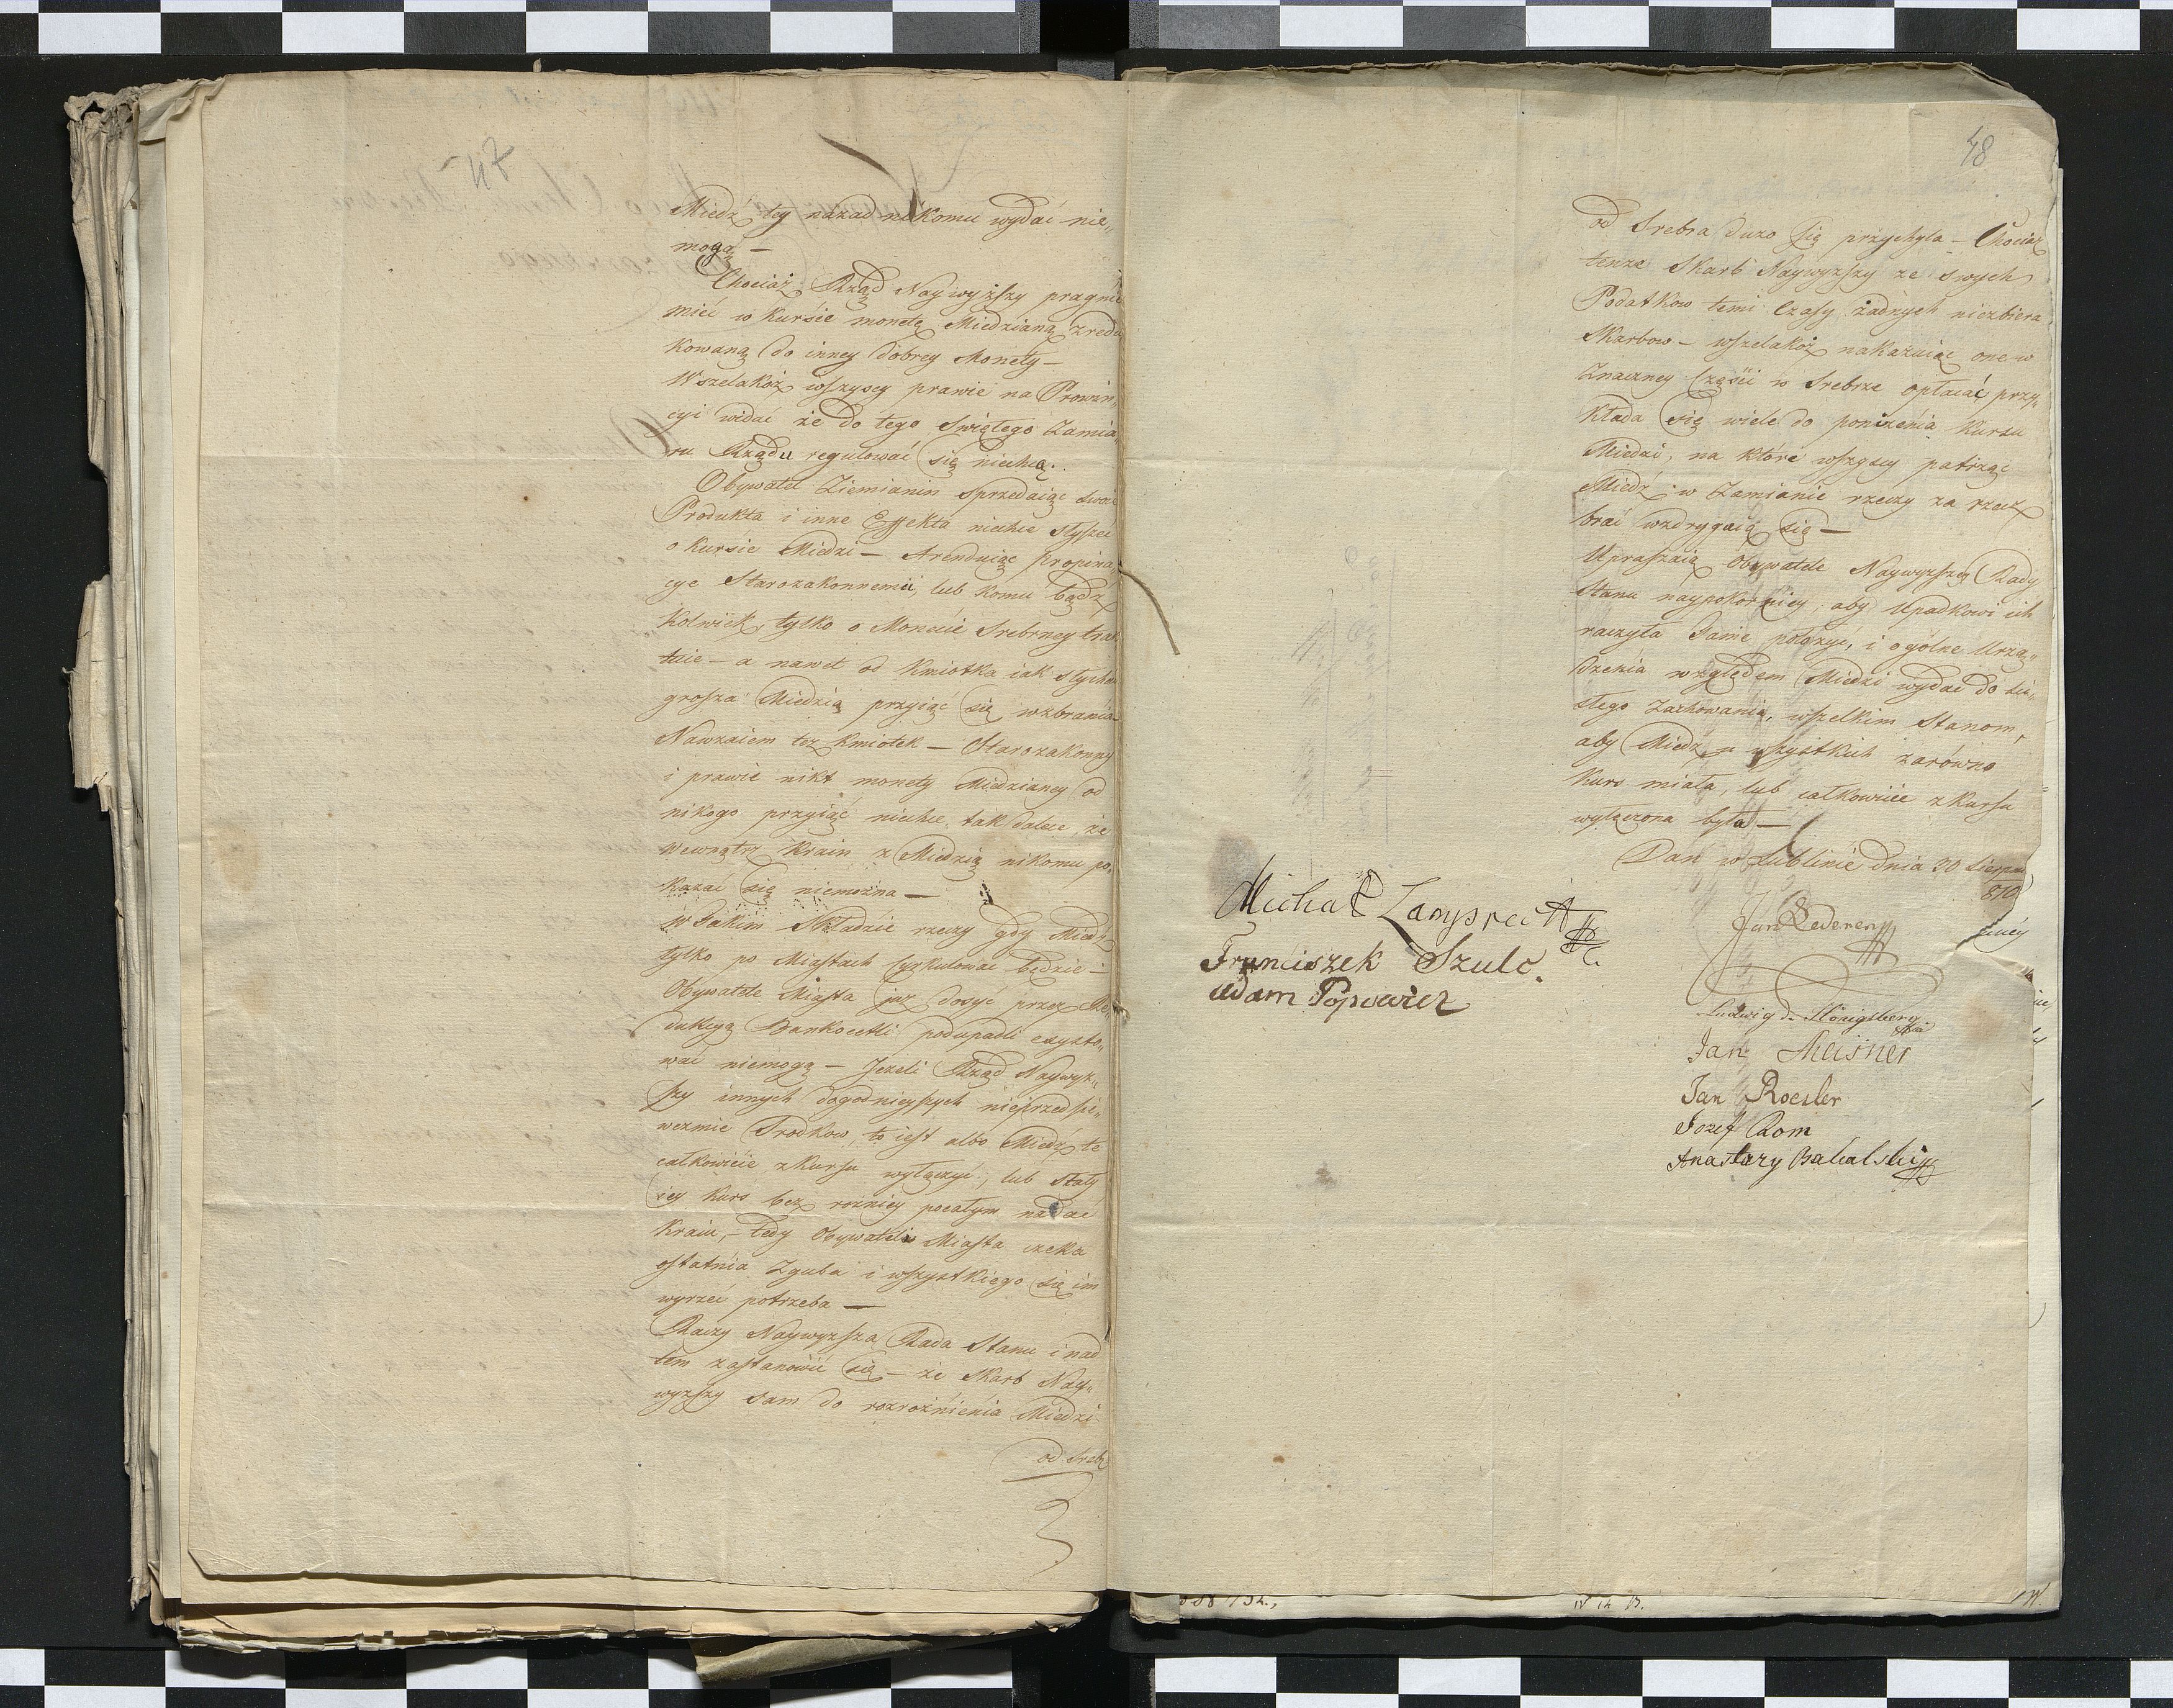 47
Miedź tey nazad nikomu wydać nie„
mogą —
Chociaż Rząd Naywyższy pragnie
mieć w kursie monetę Miedzianą zredu
kowaną do inney dobrey Monety —
Wszelakoż wszyscy prawie na Prowin„
cyi widać że do tego świętego Zamia„
ru Rządu regulować się niechcą.
Obywatel Ziemianin sprzedaiąc swoie
Produkta i inne Effekta niechce słyszeć
o kursie Miedzi — Arenduiąc propina„
cye Starozakonnemu, lub komu bądź
kolwiek, tylko o Monecie Srebrney trak
tuie — a nawet od Kmiotka iak słychać
grosza Miedzią przyiąć się wzbrania
Nawzaiem też Kmiotek — Starozakonny
i prawie nikt monety Miedzianey od
nikogo przyiąć niechce, tak dalece, że
wewnątrz Kraiu z Miedzią nikomu po„
kazać się niemożna —
W Takim Składzie rzeczy gdy Miedź
tylko po Miastach cyrkulować będzie —
Obywatele Miasta już dosyć przez Re
dukcyą Bankocetli podupadli exysto„
wać niemogą — Jeżeli Rząd Naywyż„
szy innych dogodnieyszych nieprzedsię„
weźmie Srodkow, to iest albo Miedź te
całkowicie z kursu wyłączyć, lub stały
iey kurs bez rożnicy po całym nadać
Kraiu, — tedy Obywateli Miasta czeka
ostatnia Zguba i wszystkiego się im
wyrzec potrzeba —
Raczy Naywyższa Rada Stanu i nad
tem zastanowić się — że Skarb Nay„
wyższy sam do rozrożnienia Miedzi
od Sreb
48
od Srebra dużo się przychyla — Chociaż
tenże Skarb Naywyższy ze swych
Podatkow temi Czasy żadnych niezbiera
Skarbow — wszelakoż nakazuiąc one w
Znaczney Części w Srebrze opłacać przy„
kłada się wiele do poniżenia kursu
Miedzi, na które wszyscy patrząc
Miedź w Zamianie rzeczy za rzecz
brać wzdrygaią się —
Upraszaią Obywatele Naywyższey Rady
Stanu naypokorniey, aby Upadkowi ich
raczyła Tamę położyć, i ogólne Urzą„
dzenia względem Miedzi wydać do ści„
słego Zachowania, wszelkim Stanom,
aby Miedź u wszystkich zarówno
kurs miała, lub całkowicie z kursu
wyłączona była —
Dan w Lublinie dnia 30 Sierpnia
810
Michał Lamprecht
Franciszek Szulc.
Adam Popowicz
Jan Lederer
Ludwig de Königsberg
Jan Meisner
Jan Roesler
Jozef Rom
Anastazy